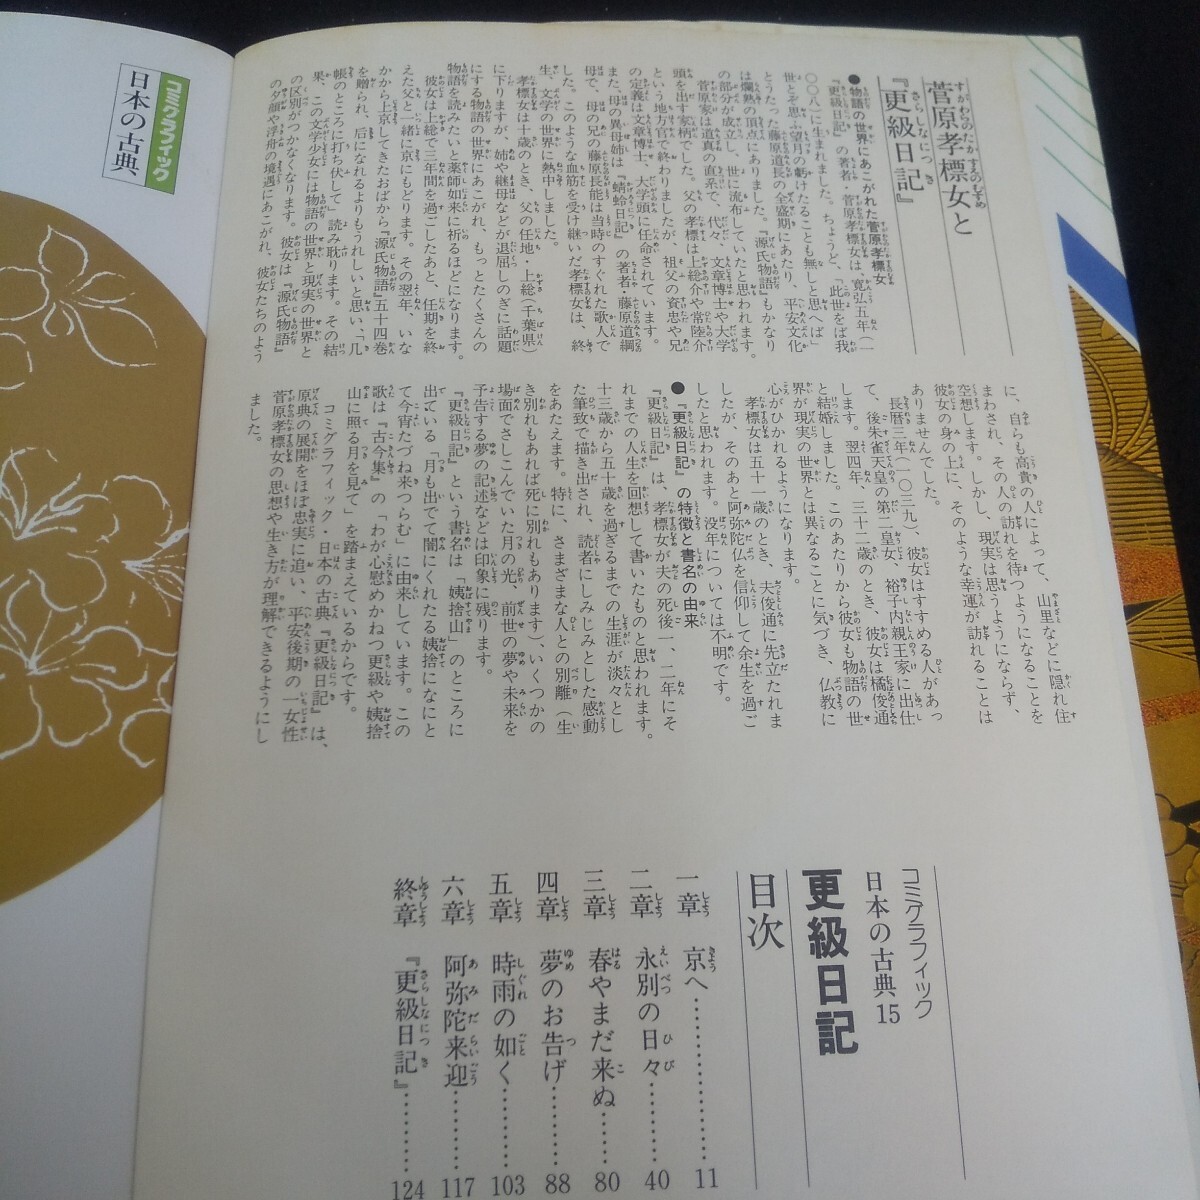 コミグラフィック
日本の古典
菅原孝標女と
『更級日記』
●物語の世界にあこがれた菅原孝標女
『更級日記』の著者・菅原孝標女は、寛弘五年(一
〇〇八)に生まれました。ちょうど、「此世をば我
世とぞ思ふ望月の虧けたることも無しと思へば」
とうたった藤原道長の全盛期にあたり、平安文化
は爛熟の頂点にありました。『源氏物語』もかなり
の部分が成立し、世に流布していたと思われます。
菅原家は道真の直系で、代々、文章博士や大学
頭を出す家柄でした。父の孝標は上総介や常陸介
という地方官で終わりましたが、祖父の資忠や兄
の定義は文章博士、大学頭に任命されています。
また、母の異母姉は『蜻蛉日記』の著者・藤原道綱
母で、母の兄の藤原長能は当時のすぐれた歌人で
した。このような血筋を受け継いだ孝標女は、終
生、文学の世界に熱中しました。
孝標女は十歳のとき、父の任地・上総(千葉県)
に下りますが、姉や継母などが退屈しのぎに話題
にする物語の世界にあこがれ、もっとたくさんの
物語を読みたいと薬師如来に祈るほどになります。
彼女は上総で三年間を過ごしたあと、任期を終
えた父と一緒に京にもどります。その翌年、いな
かから上京してきたおばから『源氏物語』五十四巻
を贈られ、后になれるよりもうれしいと思い、「几
帳のところに打ち伏して」読み耽ります。その結
果、この文学少女には物語の世界と現実の世界と
の区別がつかなくなります。彼女は『源氏物語』
の夕顔や浮舟の境遇にあこがれ、彼女たちのよう
に、自らも高貴の人によって、山里などに隠れ住
まわされ、その人の訪れを待つようになることを
空想します。しかし、現実は思うようにならず、
彼女の身の上に、そのような幸運が訪れることは
ありませんでした。
長暦三年(一〇三九)、彼女はすすめる人があっ
て、後朱雀天皇の第二皇女、裕子内親王家に出仕
します。翌四年、三十二歳のとき、彼女は橘俊通
と結婚しました。このあたりから彼女も物語の世
界が現実の世界とは異なることに気づき、仏教に
心がひかれるようになります。
孝標女は五十一歳のとき、夫俊通に先立たれま
したが、そのあと阿弥陀仏を信仰して余生を過ご
したと思われます。没年については不明です。
●『更級日記』の特徴と書名の由来
『更級日記』は、孝標女が夫の死後一、二年にそ
れまでの人生を回想して書いたものと思われます。
十三歳から五十歳を過ぎるまでの生涯が淡々とし
た筆致で描き出され、読者にしみじみとした感動
をあたえます。特に、さまざまな人との別離(生
き別れもあれば死に別れもあります)、いくつかの
場面でさしこんでいた月の光、前世の夢や未来を
予告する夢の記述などは印象に残ります。
『更級日記』という書名は「姨捨山」のところに
出ている「月も出でて闇にくれたる姨捨になにと
て今宵たづね来つらむ」に由来しています。この
歌は『古今集』の「わが心慰めかねつ更級や姨捨
山に照る月を見て」を踏まえているからです。
コミグラフィック・日本の古典『更級日記』は、
原典の展開をほぼ忠実に追い、平安後期の一女性
菅原孝標女の思想や生き方が理解できるようにし
ました。
コミグラフィック
日本の古典15
更級日記
目次
一章 京へ……………………11
二章 永別の日々……………40
三章 春やまだ来ぬ………80
四章 夢のお告げ…………88
五章 時雨の如く…………103
六章 阿弥陀来迎…………117
終章 『更級日記』…………124